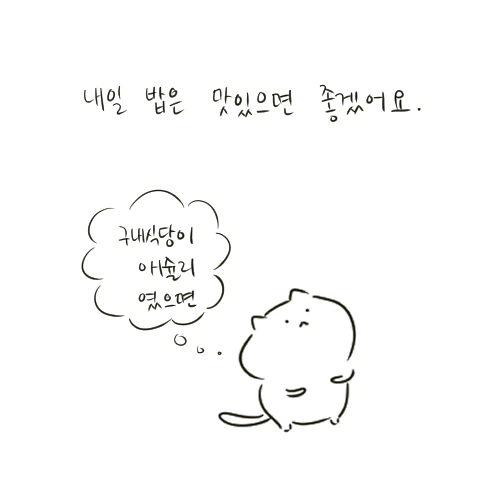 내일 밥은 맛있으면 좋겠어요.
구내식당이
애슐리
였으면